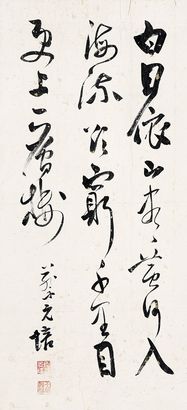 白日依山盡黃河入
海流欲窮千里目
更上一層樓
蔡元培